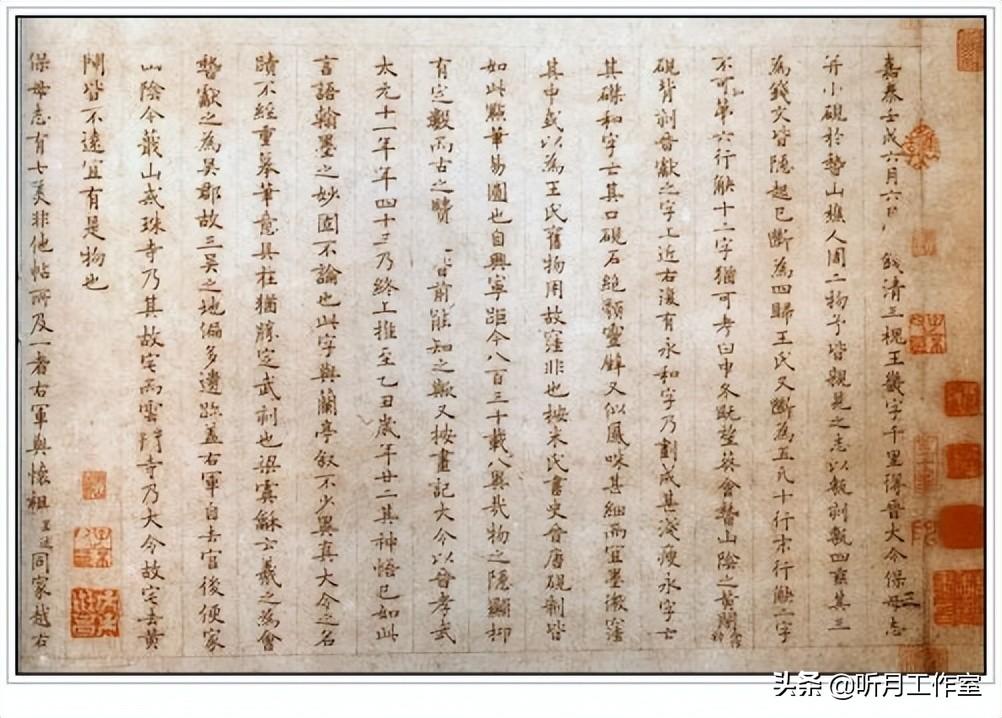 嘉泰壬戌六月六日錢清三槐王畿字千里得晉大令保母志
并小硯於稽山樵人周二物予皆親見之志以甎刻甎四垂其三
為錢文皆隱起已斷為四歸王氏又斷為五凡十行末行缺二字
不可第六行缺十二字猶可考曰中冬既望葬會稽山陰之黃閍
硯背刻晉獻之字上近右復有永和字乃劃成甚淺瘦永字亡
其磔和字亡其口硯石絕類靈璧又似鳳味甚細而宜墨微窪
其中或以為王氏舊物用故窪非也按米氏書史會唐硯制皆
如此點筆易圓也自興寧距今八百三十載八異哉物之隱顯抑
有定數而古之賢 一日前能知之歟又按畫記大令以晉孝武
太元十一年年四十三乃終上推至乙丑歲年廿二其神悟已如此
言語翰墨之妙固不論也此字與蘭亭叙不少異真大令之名
蹟不經重摹筆意具在猶勝定武刻也梁虞龢云羲之為會
稽獻之為吳郡故三吳之地偏多遺跡蓋右軍自去官後便家
山陰今蕺山戒珠寺乃其故宅而雲門寺乃大令故宅去黃
閍皆不遠宜有是物也
保母志有七美非他帖所及一者右軍與懷祖王述同家越右
三
头条 @听月工作室